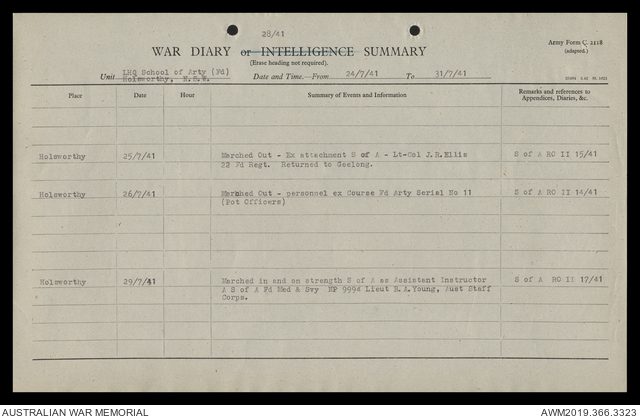 28/41
WAR DIARY or INTELLIGENCE SUMMARY
Army Form C. 2118
(adapted.)
(Erase heading not required).
Unit LHQ School of Arty (Fd)
Holsworthy, N.S.W.
Date and Time.—From 24/7/41 To 31/7/41
Place Date Hour Summary of Events and Information Remarks and references to
Appendices, Diaries, &c.
Holsworthy 25/7/41 Marched Out - Ex attachment S of A - Lt-Col J.R.Ellis S of A RO II 15/41
22 Fd Regt. Returned to Geelong.
Holsworthy 26/7/41 Marched Out - personnel ex Course Fd Arty Serial No 11 S of A RO II 14/41
(Pot Officers)
Holsworthy 29/7/41 Marched in and on strength S of A as Assistant Instructor S of A RO II 17/41
A S of A Fd Med & Svy NP 9994 Lieut R.A.Young, Aust Staff
Corps.
AUSTRALIAN WAR MEMORIAL
AWM2019.366.3323